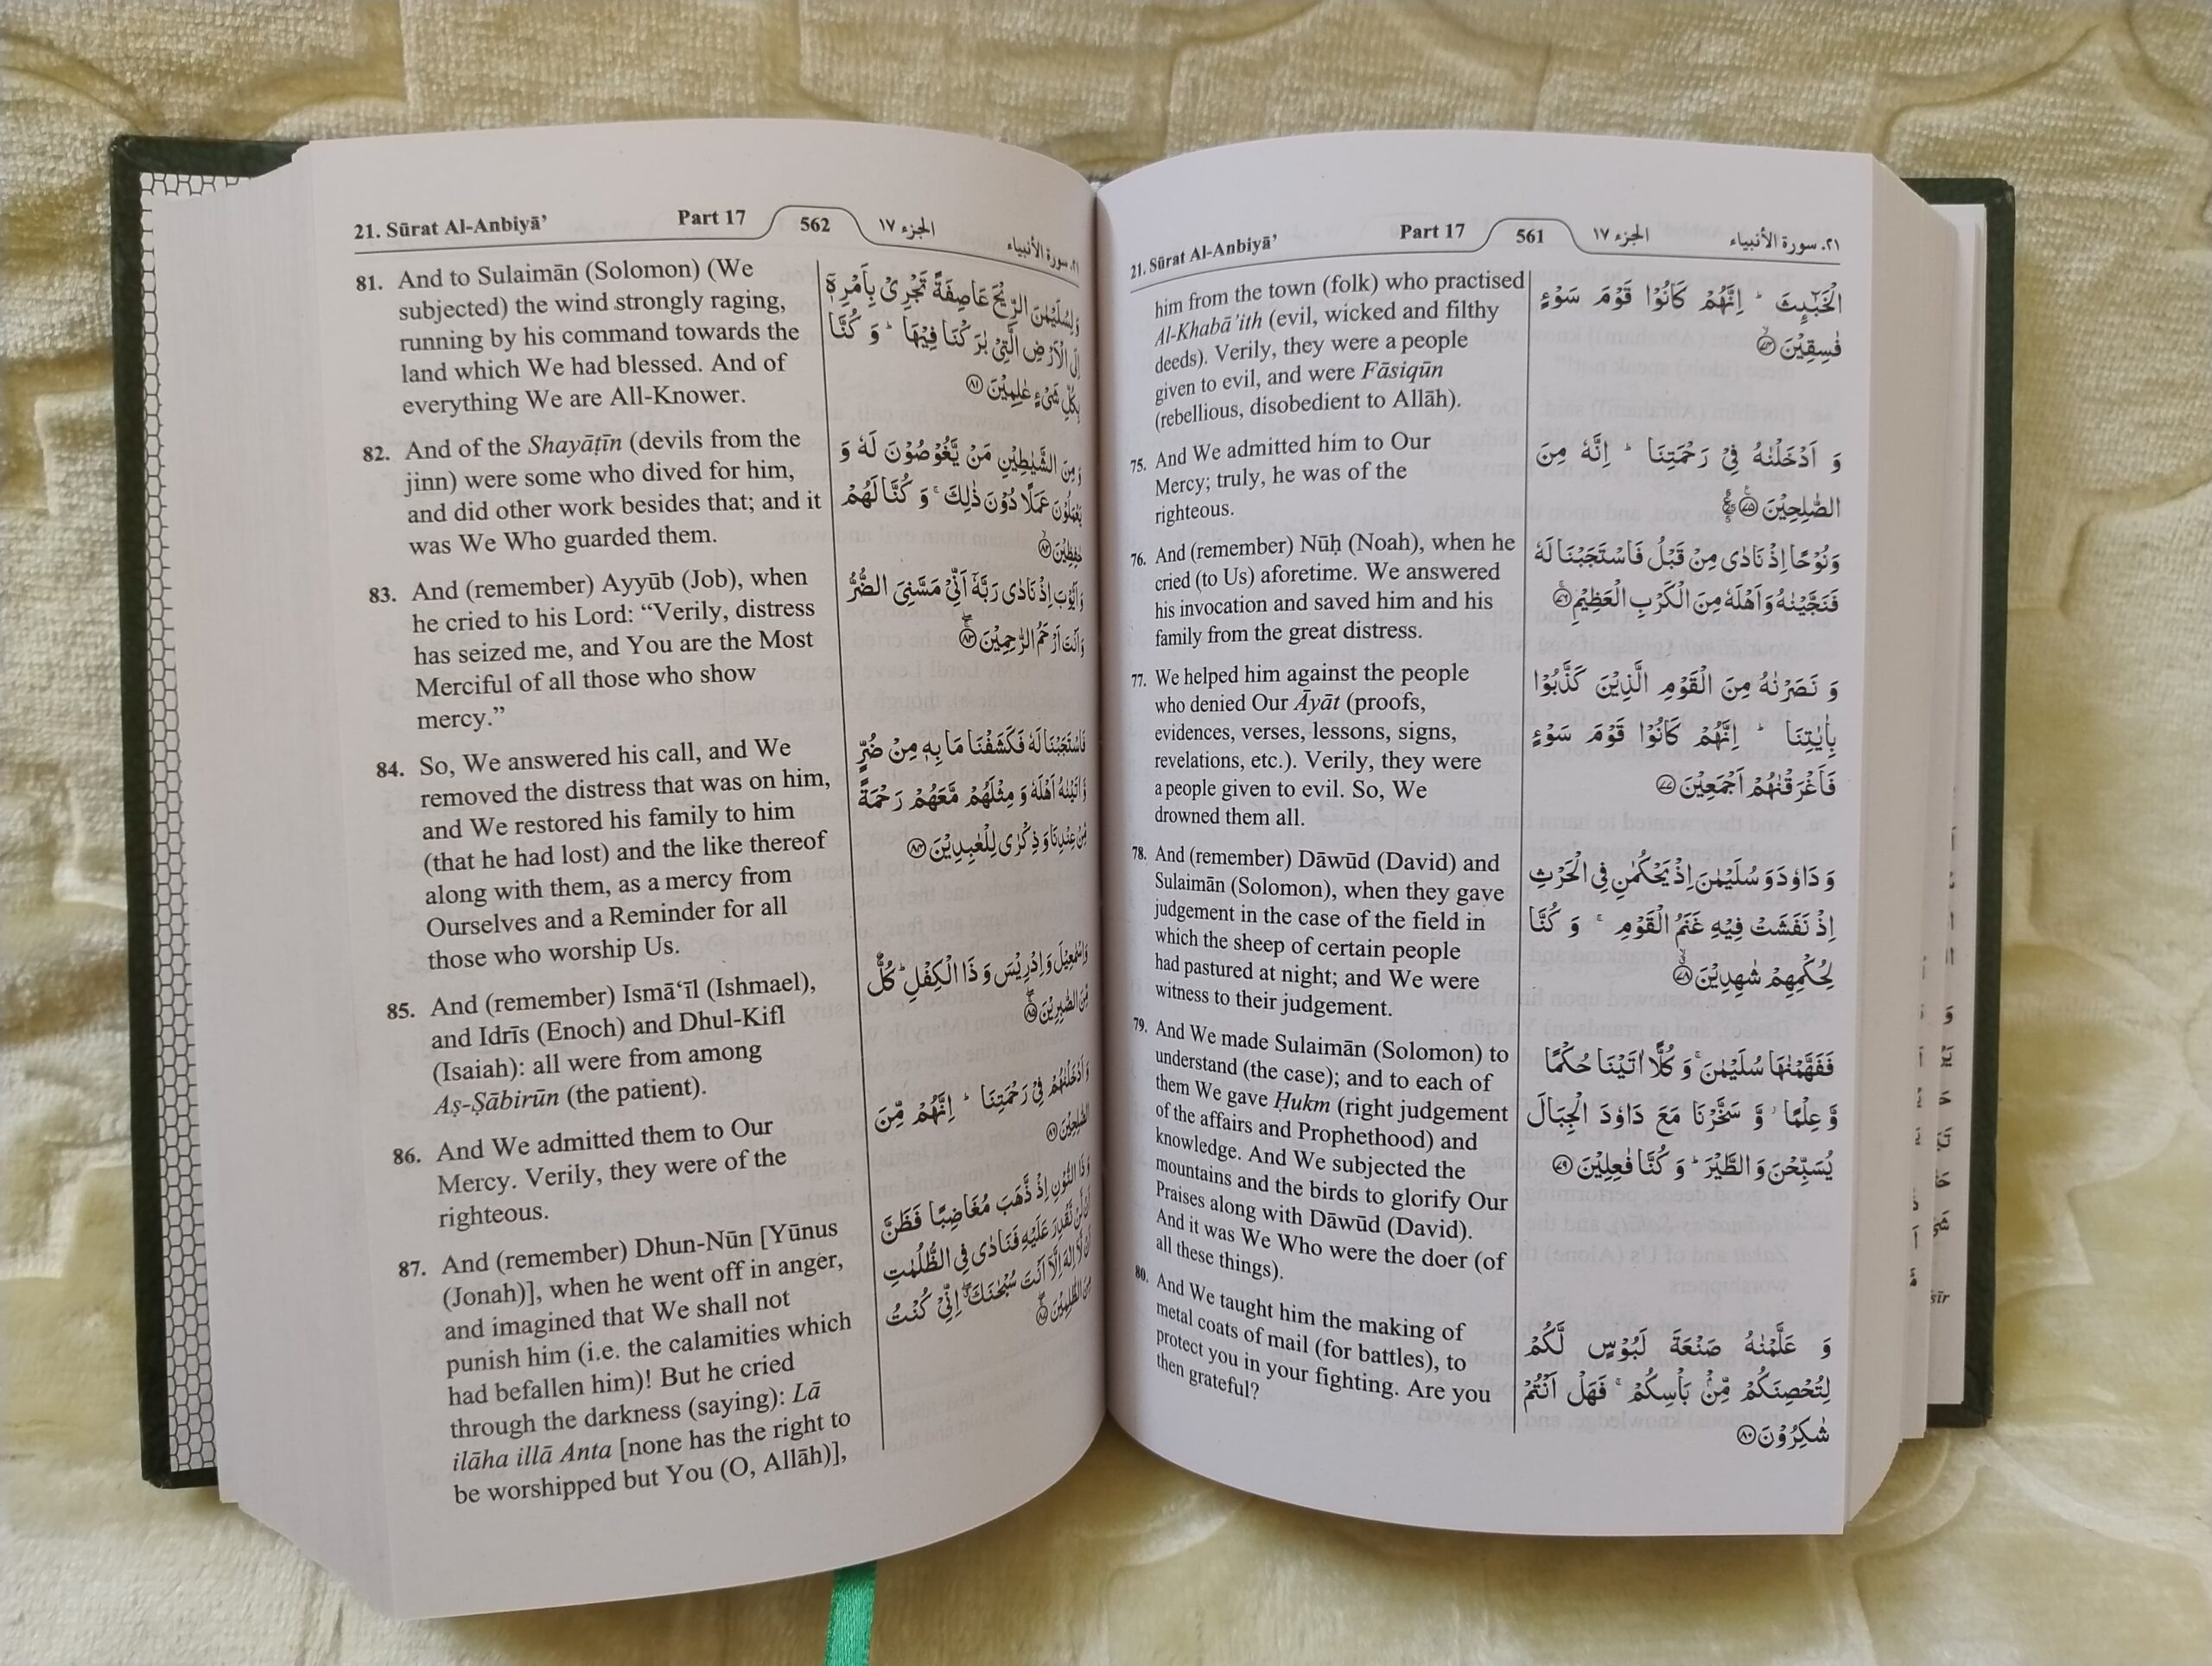 21. Sūrat Al-Anbiyā’ Part 17 561 الجزء ١٧ ٢١. سورة الأنبياء
him from the town (folk) who practised
Al-Khabā’ith (evil, wicked and filthy
deeds). Verily, they were a people
given to evil, and were Fāsiqūn
(rebellious, disobedient to Allāh).
75. And We admitted him to Our
Mercy; truly, he was of the
righteous.
76. And (remember) Nūḥ (Noah), when he
cried (to Us) aforetime. We answered
his invocation and saved him and his
family from the great distress.
77. We helped him against the people
who denied Our Āyāt (proofs,
evidences, verses, lessons, signs,
revelations, etc.). Verily, they were
a people given to evil. So, We
drowned them all.
78. And (remember) Dāwūd (David) and
Sulaimān (Solomon), when they gave
judgement in the case of the field in
which the sheep of certain people
had pastured at night; and We were
witness to their judgement.
79. And We made Sulaimān (Solomon) to
understand (the case); and to each of
them We gave Ḥukm (right judgement
of the affairs and Prophethood) and
knowledge. And We subjected the
mountains and the birds to glorify Our
Praises along with Dāwūd (David).
And it was We Who were the doer (of
all these things).
80. And We taught him the making of
metal coats of mail (for battles), to
protect you in your fighting. Are you
then grateful?
الْخَبٰٓئِثَ ؕ اِنَّهُمْ كَانُوْا قَوْمَ سَوْءٍ
فٰسِقِيْنَ ﴿٧٤﴾
وَ اَدْخَلْنٰهُ فِيْ رَحْمَتِنَا ؕ اِنَّهٗ مِنَ
الصّٰلِحِيْنَ ﴿٧٥﴾
وَنُوْحًا اِذْ نَادٰى مِنْ قَبْلُ فَاسْتَجَبْنَا لَهٗ
فَنَجَّيْنٰهُ وَاَهْلَهٗ مِنَ الْكَرْبِ الْعَظِيْمِ ﴿٧٦﴾
وَ نَصَرْنٰهُ مِنَ الْقَوْمِ الَّذِيْنَ كَذَّبُوْا
بِاٰيٰتِنَا ؕ اِنَّهُمْ كَانُوْا قَوْمَ سَوْءٍ
فَاَغْرَقْنٰهُمْ اَجْمَعِيْنَ ﴿٧٧﴾
وَ دَاوٗدَ وَ سُلَيْمٰنَ اِذْ يَحْكُمٰنِ فِي الْحَرْثِ
اِذْ نَفَشَتْ فِيْهِ غَنَمُ الْقَوْمِ ۚ وَ كُنَّا
لِحُكْمِهِمْ شٰهِدِيْنَ ﴿٧٨﴾
فَفَهَّمْنٰهَا سُلَيْمٰنَ ۚ وَ كُلًّا اٰتَيْنَا حُكْمًا
وَّ عِلْمًا ؗ وَّ سَخَّرْنَا مَعَ دَاوٗدَ الْجِبَالَ
يُسَبِّحْنَ وَ الطَّيْرَ ؕ وَ كُنَّا فٰعِلِيْنَ ﴿٧٩﴾
وَ عَلَّمْنٰهُ صَنْعَةَ لَبُوْسٍ لَّكُمْ
لِتُحْصِنَكُمْ مِّنْۢ بَاْسِكُمْ ۚ فَهَلْ اَنْتُمْ
شٰكِرُوْنَ ﴿٨٠﴾
21. Sūrat Al-Anbiyā’ Part 17 562 الجزء ١٧ ٢١. سورة الأنبياء
81. And to Sulaimān (Solomon) (We
subjected) the wind strongly raging,
running by his command towards the
land which We had blessed. And of
everything We are All-Knower.
82. And of the Shayāṭīn (devils from the
jinn) were some who dived for him,
and did other work besides that; and it
was We Who guarded them.
83. And (remember) Ayyūb (Job), when
he cried to his Lord: “Verily, distress
has seized me, and You are the Most
Merciful of all those who show
mercy.”
84. So, We answered his call, and We
removed the distress that was on him,
and We restored his family to him
(that he had lost) and the like thereof
along with them, as a mercy from
Ourselves and a Reminder for all
those who worship Us.
85. And (remember) Ismā‘īl (Ishmael),
and Idrīs (Enoch) and Dhul-Kifl
(Isaiah): all were from among
Aṣ-Ṣābirūn (the patient).
86. And We admitted them to Our
Mercy. Verily, they were of the
righteous.
87. And (remember) Dhun-Nūn [Yūnus
(Jonah)], when he went off in anger,
and imagined that We shall not
punish him (i.e. the calamities which
had befallen him)! But he cried
through the darkness (saying): Lā
ilāha illā Anta [none has the right to
be worshipped but You (O, Allāh)],
وَلِسُلَيْمٰنَ الرِّيْحَ عَاصِفَةً تَجْرِيْ بِاَمْرِهٖٓ
اِلَى الْاَرْضِ الَّتِيْ بٰرَكْنَا فِيْهَا ؕ وَ كُنَّا
بِكُلِّ شَيْءٍ عٰلِمِيْنَ ﴿٨١﴾
وَمِنَ الشَّيٰطِيْنِ مَنْ يَّغُوْصُوْنَ لَهٗ وَ
يَعْمَلُوْنَ عَمَلًا دُوْنَ ذٰلِكَ ۚ وَ كُنَّا لَهُمْ
حٰفِظِيْنَ ﴿٨٢﴾
وَاَيُّوْبَ اِذْ نَادٰى رَبَّهٗٓ اَنِّيْ مَسَّنِيَ الضُّرُّ
وَاَنْتَ اَرْحَمُ الرّٰحِمِيْنَ ﴿٨٣﴾
فَاسْتَجَبْنَا لَهٗ فَكَشَفْنَا مَا بِهٖ مِنْ ضُرٍّ
وَّاٰتَيْنٰهُ اَهْلَهٗ وَ مِثْلَهُمْ مَّعَهُمْ رَحْمَةً
مِّنْ عِنْدِنَا وَ ذِكْرٰى لِلْعٰبِدِيْنَ ﴿٨٤﴾
وَاِسْمٰعِيْلَ وَاِدْرِيْسَ وَ ذَا الْكِفْلِ ؕ كُلٌّ
مِّنَ الصّٰبِرِيْنَ ﴿٨٥﴾
وَاَدْخَلْنٰهُمْ فِيْ رَحْمَتِنَا ؕ اِنَّهُمْ مِّنَ
الصّٰلِحِيْنَ ﴿٨٦﴾
وَذَا النُّوْنِ اِذْ ذَّهَبَ مُغَاضِبًا فَظَنَّ
اَنْ لَّنْ نَّقْدِرَ عَلَيْهِ فَنَادٰى فِي الظُّلُمٰتِ
اَنْ لَّآ اِلٰهَ اِلَّآ اَنْتَ سُبْحٰنَكَ ۖ اِنِّيْ كُنْتُ
مِنَ الظّٰلِمِيْنَ ﴿٨٧﴾